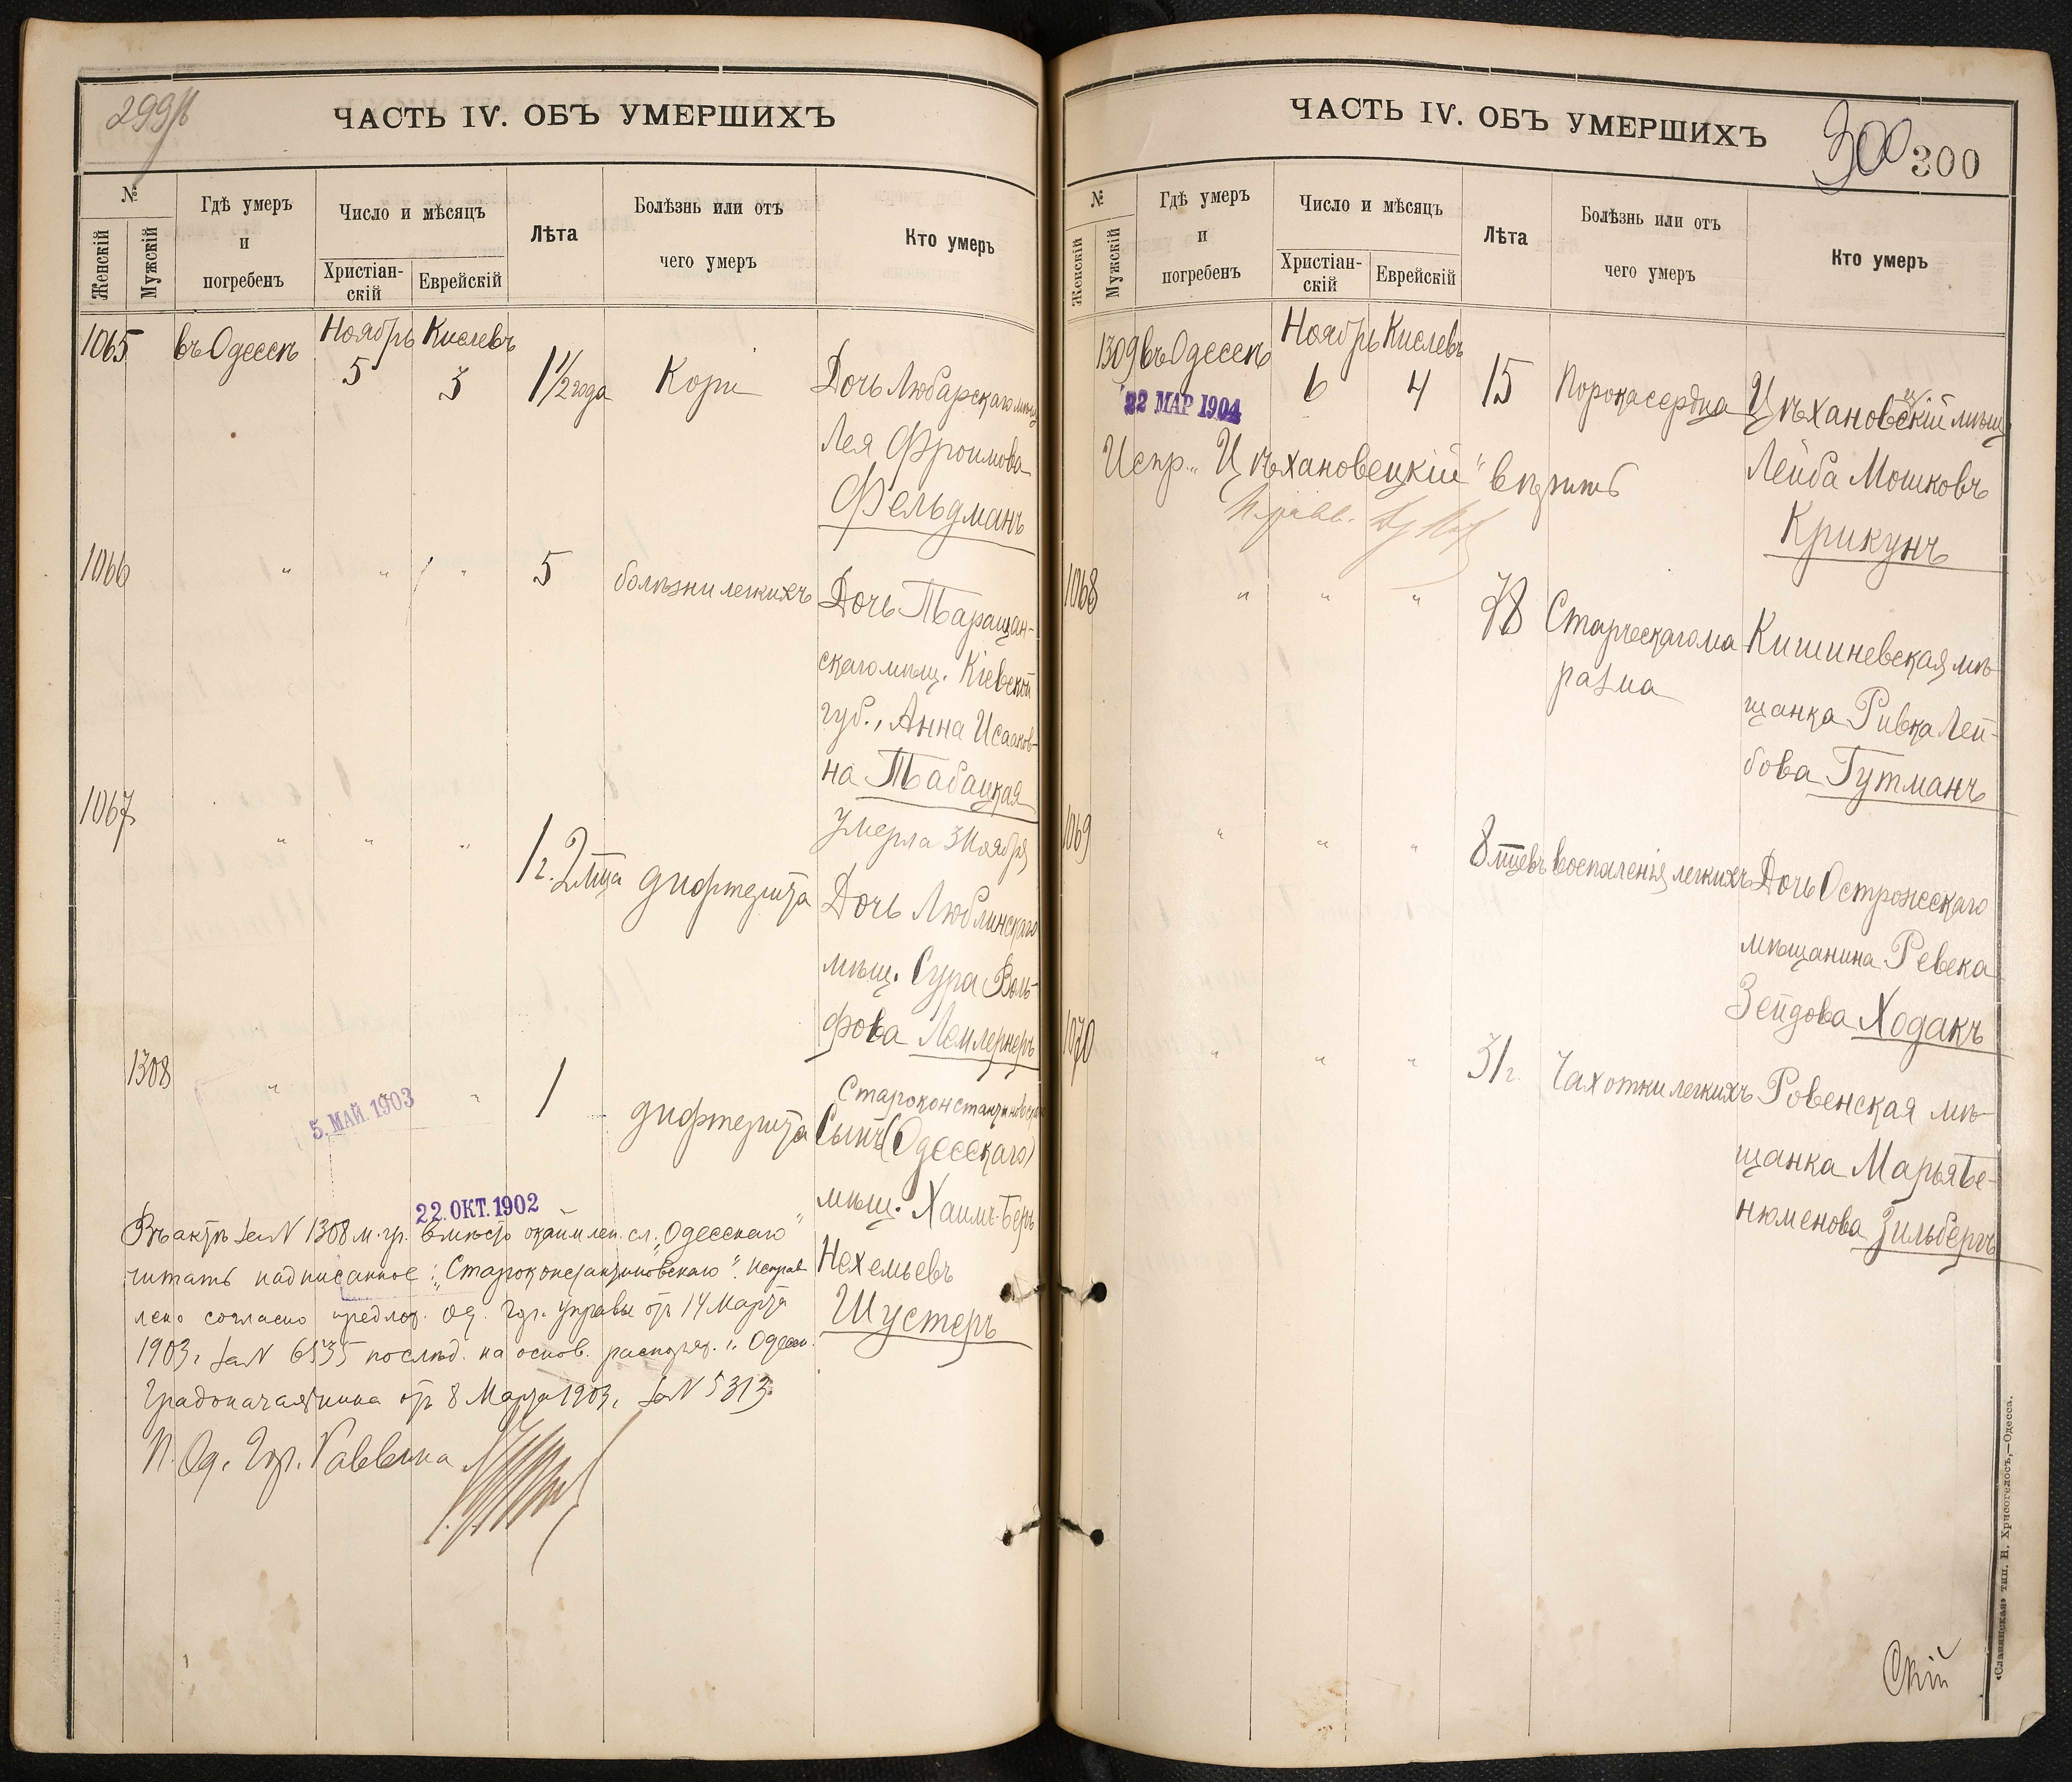 299/б
ЧАСТЬ IV. ОБЪ УМЕРШИХЪ
№
Женскій
Мужскій
Гдѣ умеръ
и
погребенъ
Число и мѣсяцъ
Христіан-
скій
Еврейскій
Лѣта
Болѣзнь или отъ
чего умеръ
Кто умеръ
1065 въ Одессѣ Ноябрь Кислевъ
5 3 1 1/2 года Кори Дочь Любарскаго мѣщ
Лея Фроимова
Фельдманъ
1066 " " " 5 болѣзни легкихъ Дочь Таращан-
скаго мѣщ. Кіевской
губ., Анна Исааков-
на Табацкая
умерла 3 Ноября
1067 " " " 1 г. 2 мца дифтерита Дочь Люблинскаго
мѣщ. Сура Воль-
фова Лемлернеръ
Староконстантиновскаго
1308 " " " 1 дифтерита Сынъ (Одесскаго)
5. МАЙ. 1903
мѣщ. Хаимъ-Беръ
Нехемьевъ
Шустеръ
22. ОКТ. 1902
Въ актѣ за N 1308 м. гр. вмѣсто окаймлен. сл. „Одесскаго"
читать надписанное: „Староконстантиновскаго". Исправ
лено согласно предлож. Од. гор. управы отъ 14 Марта
1903 г. за N 6535 послѣд. на основ. распоряж. г. Одесск.
Градоначальника отъ 8 Марта 1903 г. за N 5313.
И. Од. Гор. Раввина
ЧАСТЬ IV. ОБЪ УМЕРШИХЪ
300 300
№
Женскій
Мужскій
Гдѣ умеръ
и
погребенъ
Число и мѣсяцъ
Христіан-
скій
Еврейскій
Лѣта
Болѣзнь или отъ
чего умеръ
Кто умеръ
1309 въ Одессѣ Ноябрь Кислевъ
6 4 15 Порока сердца Цѣхановскій мѣщ
22 МАР 1904
Испр. „Цѣхановецкій" вѣрить
Лейба Мошковъ
Крикунъ
1068 " " " 78 Старческаго ма
разма
Кишиневская мѣ-
щанка Ривка Лей-
бова Гутманъ
1069 " " " 8 мцевъ воспаленія легкихъ Дочь Острожскаго
мѣщанина Ревека
Зейдова Ходакъ
1070 " " " 31 г. Чахотки легкихъ Ровенская мѣ-
щанка Марья Бе-
нюменова Зильберъ
Скій
«Славянская» тип. Н. Хрисогелосъ,—Одесса.